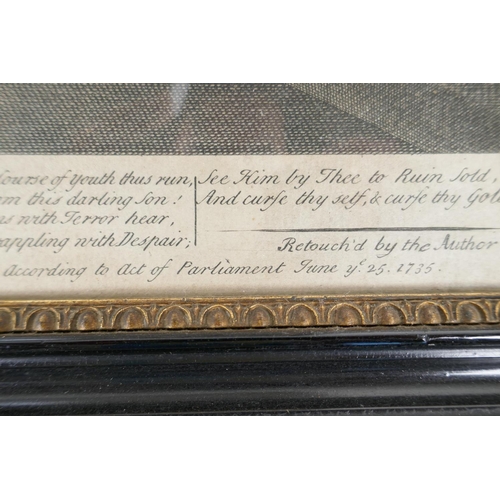 Course of Youth thus run,
this darling Son!
with Terror hear,
with Despair;
See Him by Thee to Ruin Sold,
And curse thy self, & curse thy Gold
Retouch'd by the Author
According to Act of Parliament June yᵉ. 25. 1735.